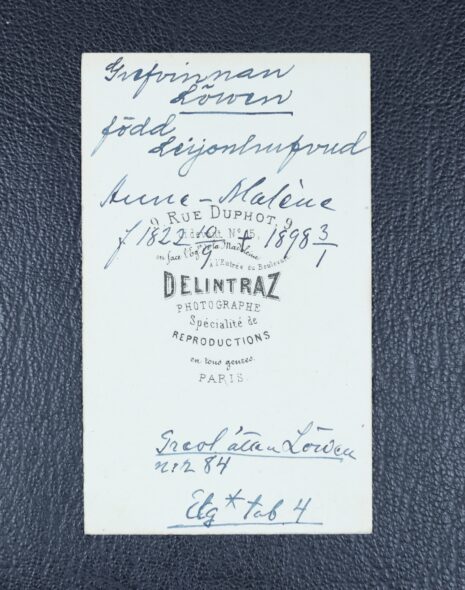 Grefvinnan
Löwen
född
Leijonhufvud
Anne-Malène
9 RUE DUPHOT, 9
f 1822 19/9 + 1898 3/1
ci-devant Nº 15,
en face l'Egl. de la Madeleine
à l'Entrée du Boulevard
DELINTRAZ
PHOTOGRAPHE
Spécialité de
REPRODUCTIONS
en tous genres.
PARIS
Grevl. ätten Löwen
n:r 84
tab 4